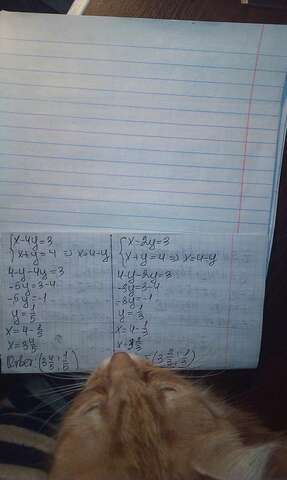 {x-4y=3
x+y=4 => x=4-y
4-y-4y=3
-5y=3-4
-5y=-1
y=1/5
x=4-1/5
x=3 4/5
Ответ: (3 4/5; 1/5)
{x-2y=3
x+y=4 => x=4-y
4-y-2y=3
-3y=3-4
-3y=-1
y=1/3
x=4-1/3
x=3 2/3
=(3 2/3; 1/3)